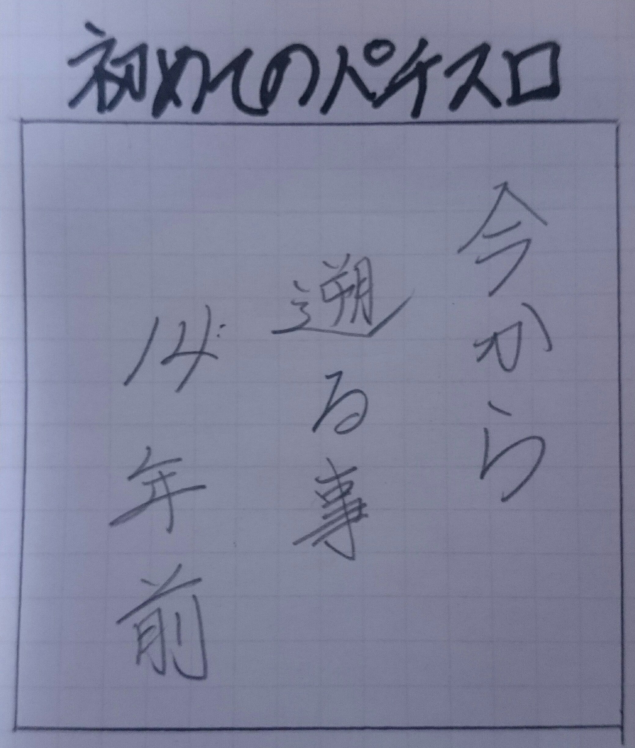 初めてのパチスロ
今から
遡る事
14年前